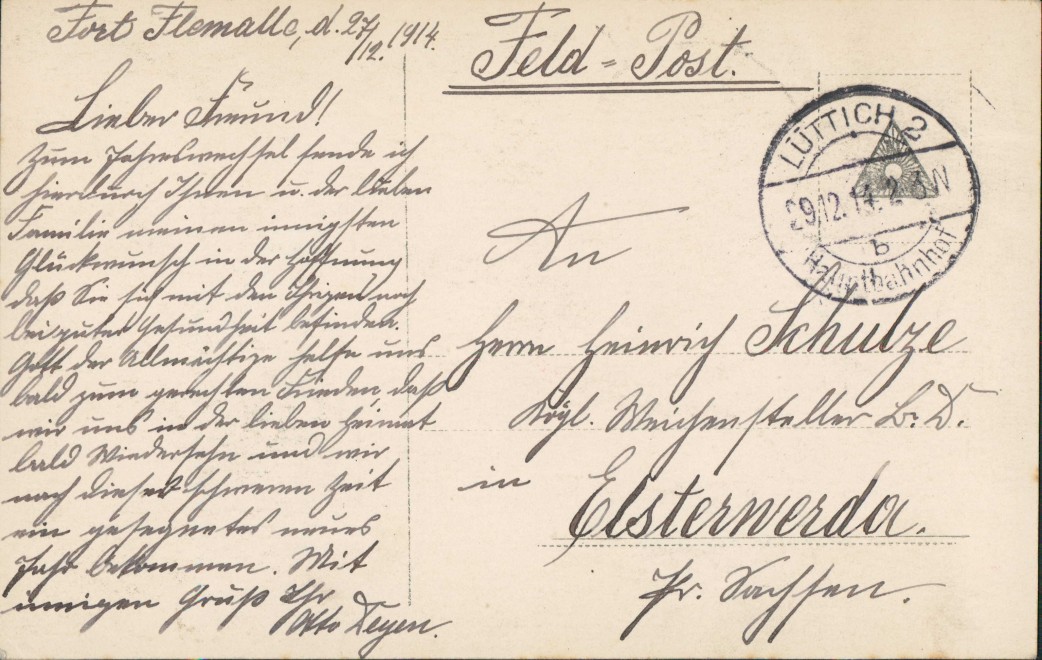 Fort Flemalle, d. 27/12. 1914.
Lieber Freund!
Zum Jahreswechsel sende ich
hierdurch Ihnen u. der lieben
Familie meinen innigsten
Glückwunsch in der Hoffnung
daß Sie sich mit den Ihrigen noch
bei guter Gesundheit befinden.
Gott der Allmächtige helfe uns
bald zum gerechten Frieden daß
wir uns in der lieben Heimat
bald Wiedersehn und wir
nach dieser schweren Zeit
ein gesegnetes neues
Jahr bekommen. Mit
innigen Gruß Ihr
Otto
Feld=Post.
LÜTTICH 2
29.12.14. 2-3N
b
Hauptbahnhof
An
Herrn Heinrich Schulze
Kögl. Weichensteller B. D.
in Elsterwerda.
Pr. Sachsen.